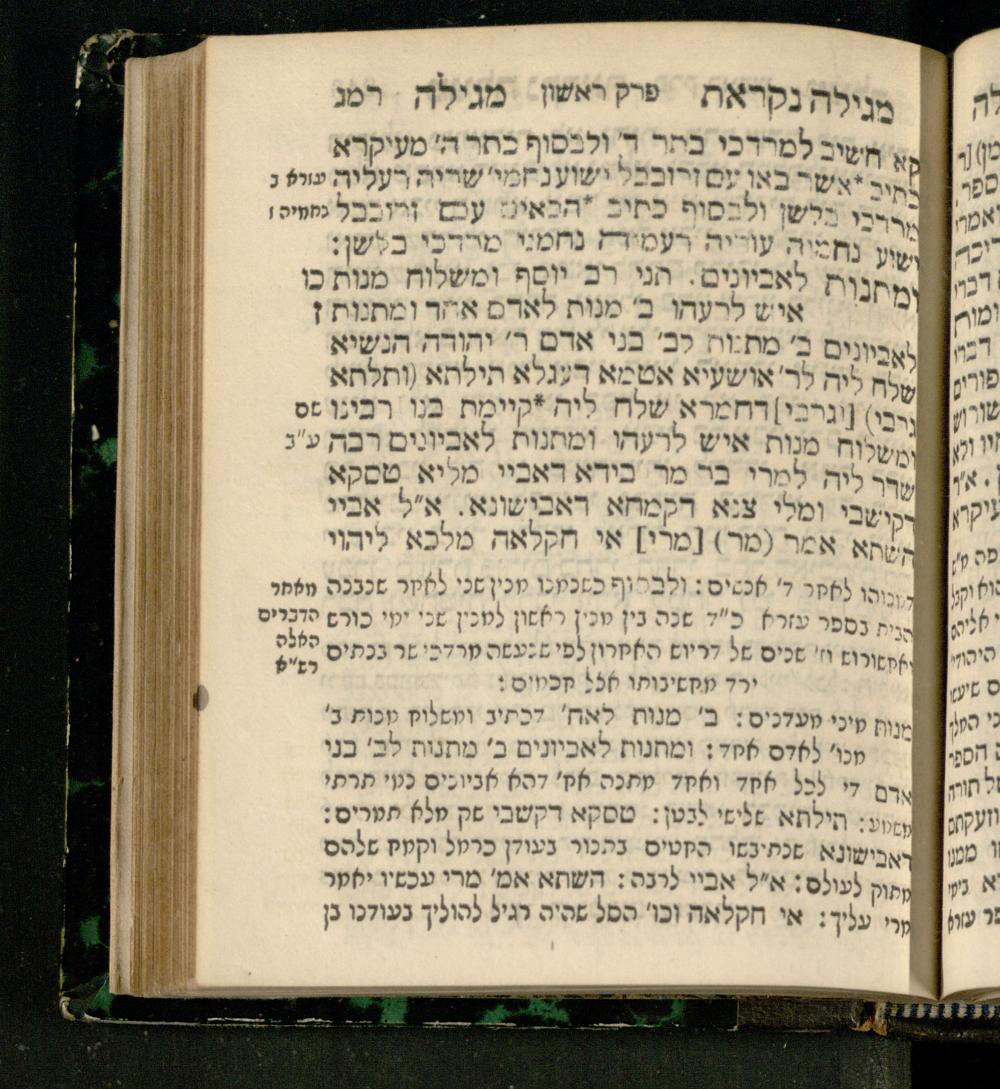 מגילה נקראת פרק ראשון מגילה רמג
קא חשיב למרדכי בתר ד' ולבסוף בתר ה' מעיקרא
כתיב *אשר באו עם זרובבל ישוע נחמי' שריה רעליה עזרא ב
מרדכי בלשן ולבסוף כתיב *הבאים עם זרובבל נחמיה ז
ישוע נחמיה עזריה רעמיה נחמני מרדכי בלשן:
ומתנות לאביונים. תני רב יוסף ומשלוח מנות כו
איש לרעהו ב' מנות לאדם אחד ומתנות ז
לאביונים ב' מתנות לב' בני אדם ר' יהודה הנשיא
שלח ליה לר' אושעיא אטמא דעגלא תילתא (ותלתא
גרבי) [וגרבי] דחמרא שלח ליה *קיימת בנו רבינו שם
ומשלוח מנות איש לרעהו ומתנות לאביונים רבה ע"ב
שדר ליה למרי בר מר בידא דאביי מליא טסקא
דקישבי ומלי צנא דקמחא דאבישונא. א"ל אביי
השתא אמר (מר) [מרי] אי חקלאה מלכא ליהוי
לאחר ד' אנשים: ולבסוף כשנמנו מנין שני לאחר שנבנה מאחר
הבית בספר עזרא כ"ד שנה בין מנין ראשון למנין שני ימי כורש הדברים
ואחשורוש וז' שנים של דריוש האחרון לפי שנעשה מרדכי שר בנתים האלה
ירד מחשיבותו אצל חכמים: רש"א
מנות מיני מעדנים: ב' מנות לאח' דכתיב ומשלוח מנות ב'
מנו' לאדם אחד: ומתנות לאביונים ב' מתנות לב' בני
אדם די לכל אחד ואחד מתנה אח' דהא אביונים נמי תרתי
משמע: תילתא שלישי לבטן: טסקא דקשבי שק מלא תמרים:
דאבישונא שנתיבשו החטים בתנור בעודן כרמל וקמח שלהם
מתוק לעולם: א"ל אביי לרבה: השתא אמ' מרי עכשיו יאמר
מרי עליך: אי חקלאה וכו' הסל שהיה רגיל להוליך בעודנו בן